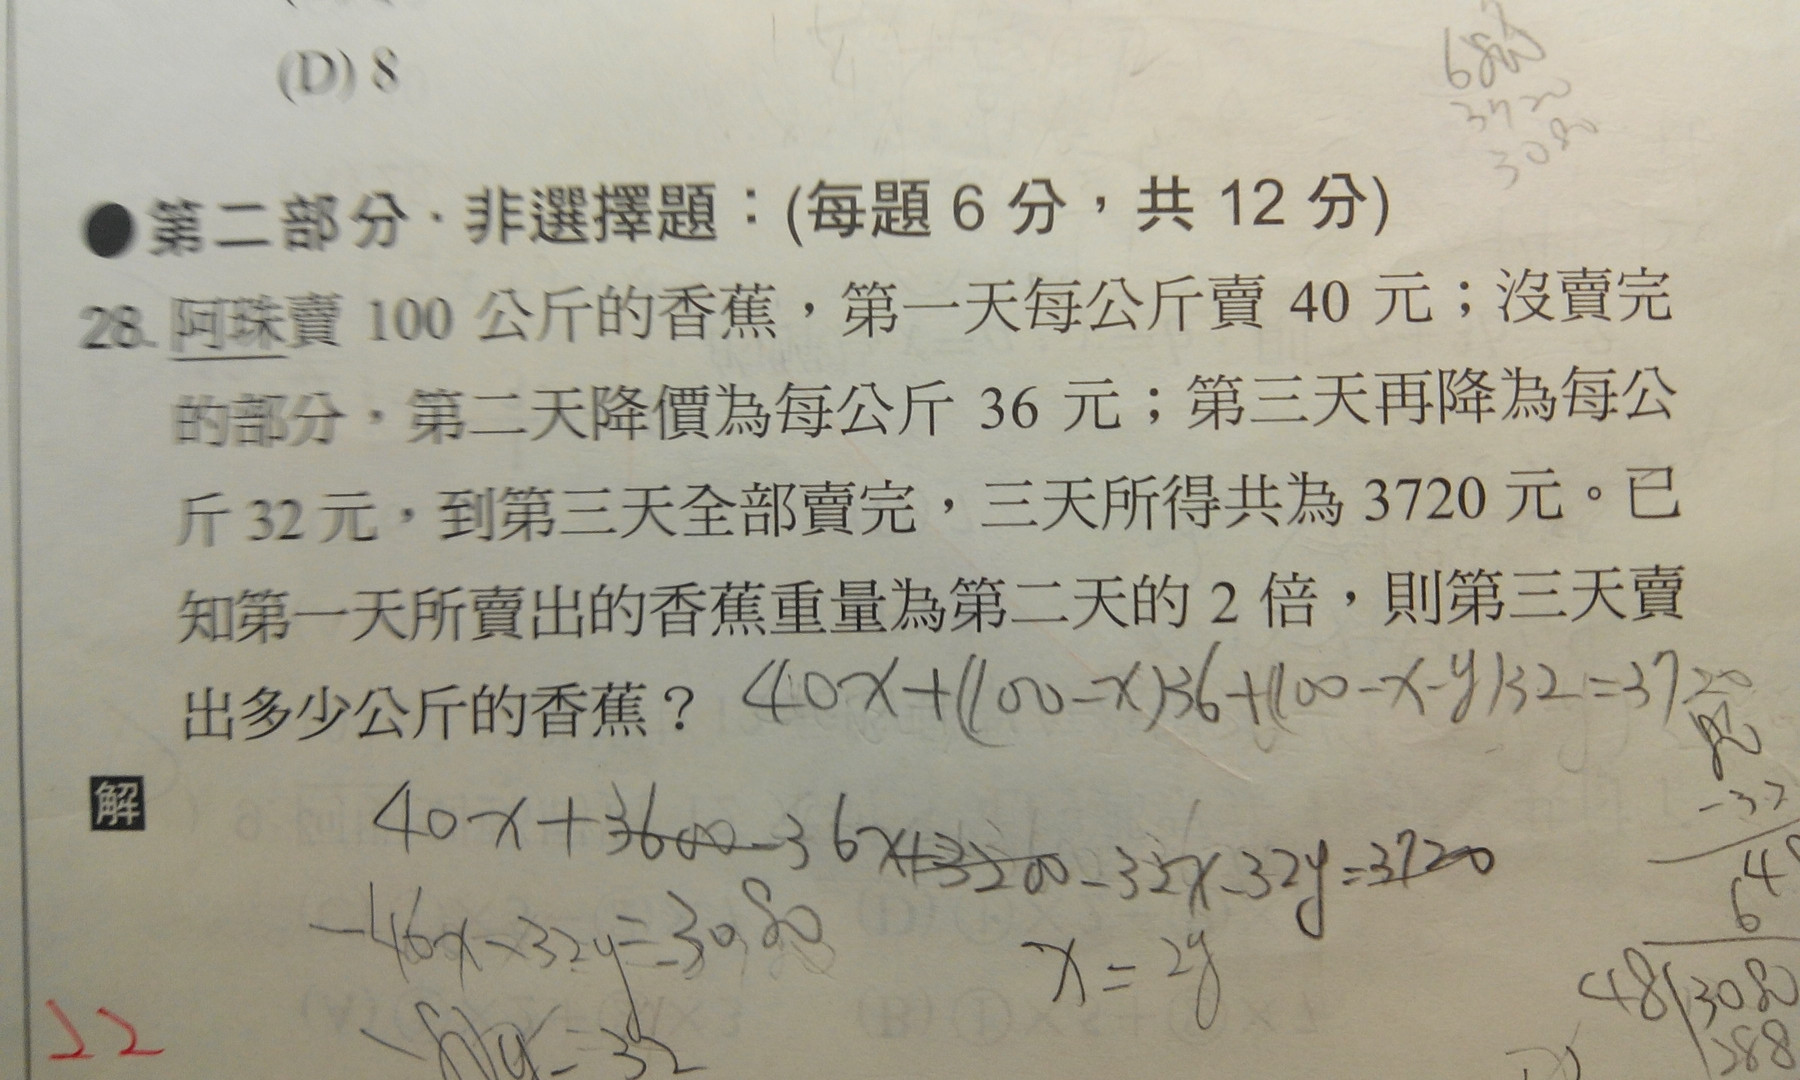 (D) 8
680
3720
3080
●第二部分．非選擇題：(每題 6 分，共 12 分)
28. 阿珠賣 100 公斤的香蕉，第一天每公斤賣 40 元；沒賣完
的部分，第二天降價為每公斤 36 元；第三天再降為每公
斤 32 元，到第三天全部賣完，三天所得共為 3720 元。已
知第一天所賣出的香蕉重量為第二天的 2 倍，則第三天賣
出多少公斤的香蕉？
40x+(100-x)36+(100-x-y)32=3720
解
40x+3600-36x+3200-32x-32y=3720
-32
x=2y
64
48
3080
288
22